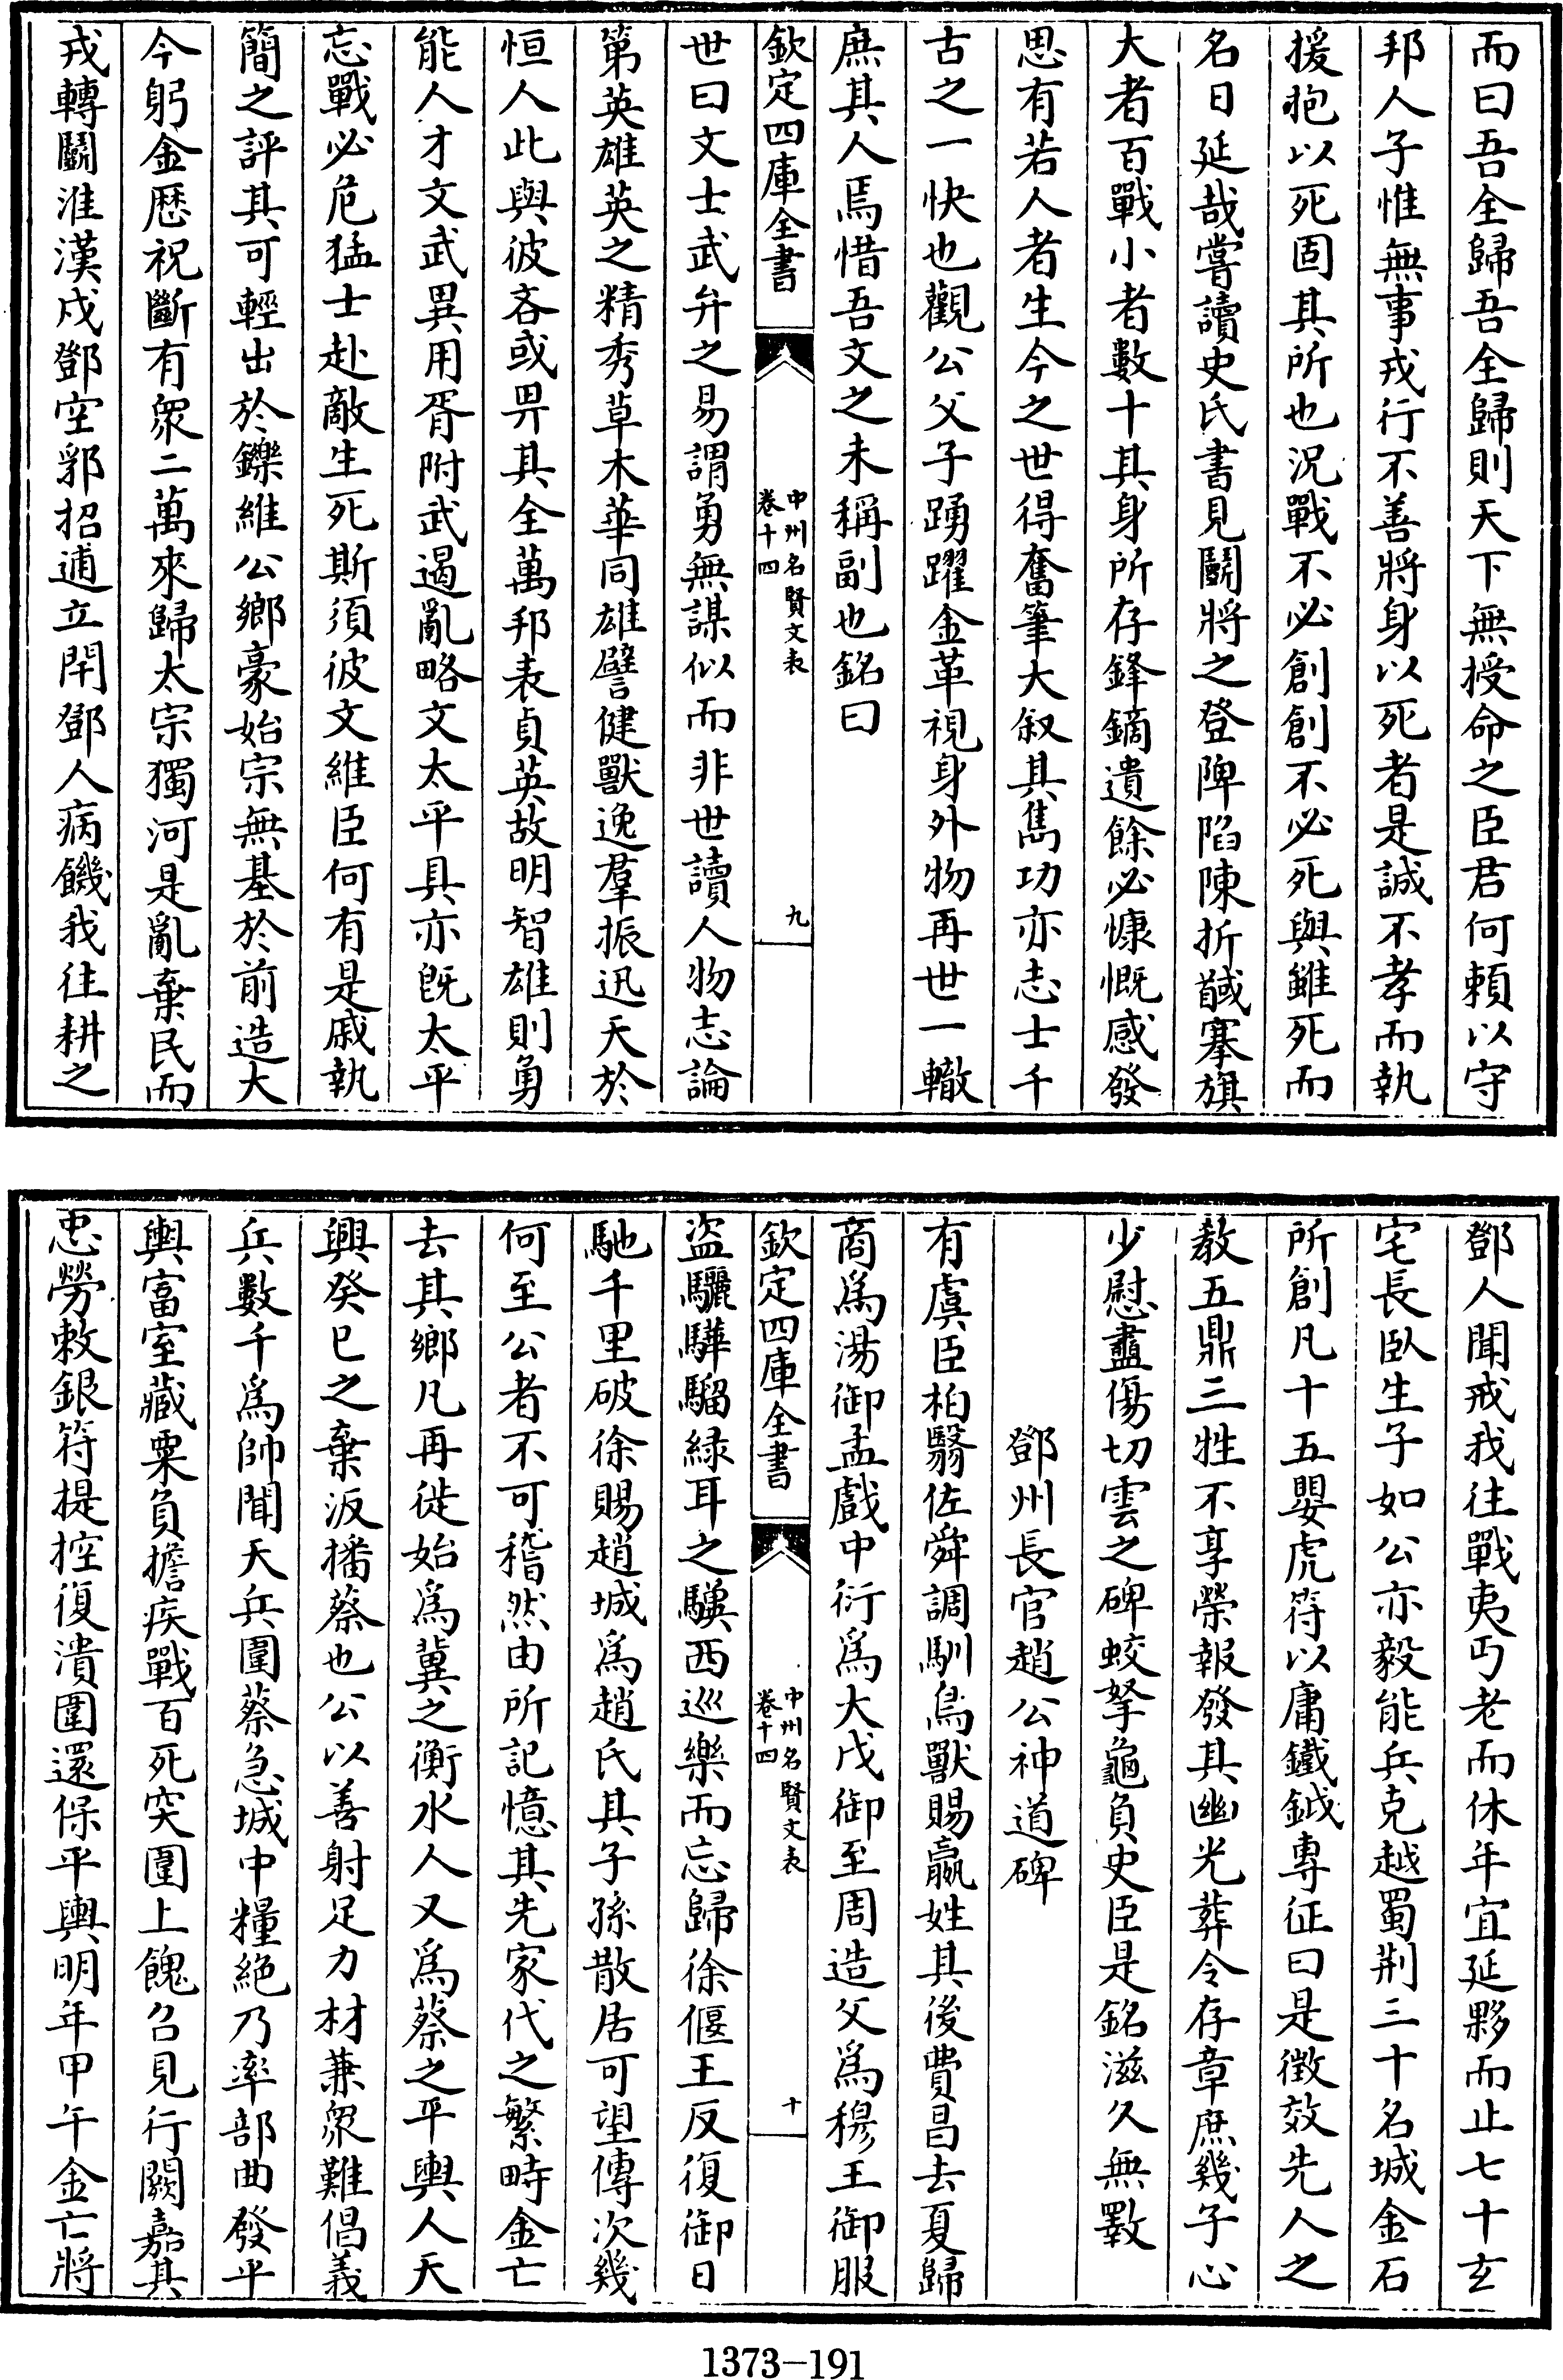 而曰吾全歸吾全歸則天下無授命之臣君何賴以守
邦人子惟無事戎行不善將身以死者是誠不孝而執
援枹以死固其所也況戰不必創創不必死與雖死而
名日延哉嘗讀史氏書見鬭將之登陴陷陳折馘搴旗
大者百戰小者數十其身所存鋒鏑遺餘必慷慨感發
思有若人者生今之世得奮筆大叙其雋功亦志士千
古之一快也觀公父子踴躍金革視身外物再世一轍
庶其人焉惜吾文之未稱副也銘曰
欽定四庫全書
中州名賢文表
卷十四
九
世曰文士武弁之易謂勇無謀似而非世讀人物志論
第英雄英之精秀草木華同雄譬健獸逸羣振迅天於
恒人此與彼吝或畀其全萬邦表貞英故明智雄則勇
能人才文武異用胥附武遏亂略文太平具亦既太平
忘戰必危猛士赴敵生死斯須彼文維臣何有是戚執
簡之評其可輕出於鑠維公鄉豪始宗無基於前造大
今躬金歷祝斷有衆二萬來歸太宗獨河是亂棄民而
戎轉鬭淮漢戍鄧空郛招逋立閈鄧人病饑我往耕之
鄧人聞戒我往戰夷丐老而休年宜延夥而止七十玄
宅長臥生子如公亦毅能兵克越蜀荆三十名城金石
所創凡十五嬰虎符以庸鐵鉞專征曰是徵效先人之
教五鼎三牲不享榮報發其幽光葬令存章庶幾子心
少慰衋傷切雲之碑蛟拏龜負史臣是銘滋久無斁
鄧州長官趙公神道碑
有虞臣柏翳佐舜調馴鳥獸賜嬴姓其後費昌去夏歸
商爲湯御孟戲中衍爲大戊御至周造父爲穆王御服
欽定四庫全書
中州名賢文表
卷十四
十
盜驪驊騮緑耳之驥西巡樂而忘歸徐偃王反復御日
馳千里破徐賜趙城爲趙氏其子孫散居可望傳次幾
何至公者不可稽然由所記憶其先家代之繁畤金亡
去其鄉凡再徙始爲冀之衡水人又爲蔡之平輿人天
興癸巳之棄汳播蔡也公以善射足力材兼衆難倡義
兵數千爲帥聞天兵圍蔡急城中糧絶乃率部曲發平
輿富室藏粟負擔疾戰百死突圍上餽召見行闕嘉其
忠勞敕銀符提控復潰圍還保平輿明年甲午金亡將
1373-191